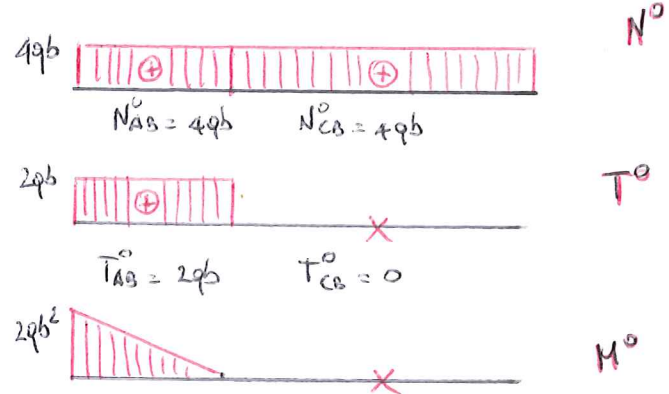 N⁰
4qb
⊕ ⊕
N⁰AB = 4qb N⁰CB = 4qb
2qb
⊕
T⁰
T⁰AB = 2qb T⁰CB = 0
2qb²
M⁰